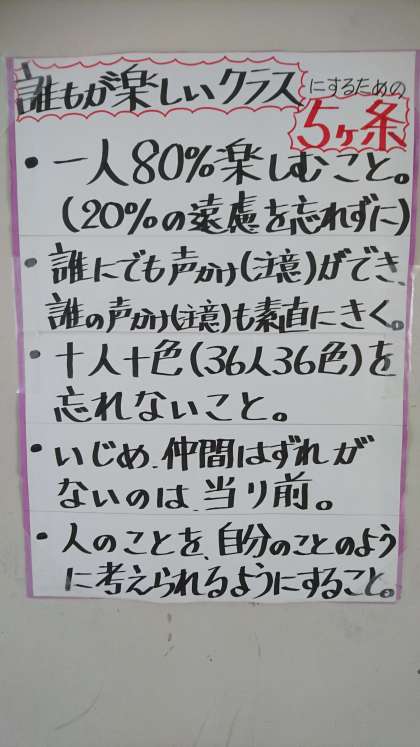 誰もが楽しいクラスにするための
5ヶ条
・一人80%楽しむこと。
(20%の遠慮を忘れずに)
・誰にでも声かけ(注意)ができ、
誰の声かけ(注意)も素直にきく。
・十人十色(36人36色)を
忘れないこと。
・いじめ、仲間はずれが
ないのは、当り前。
・人のことを、自分のことのよう
に考えられるようにすること。